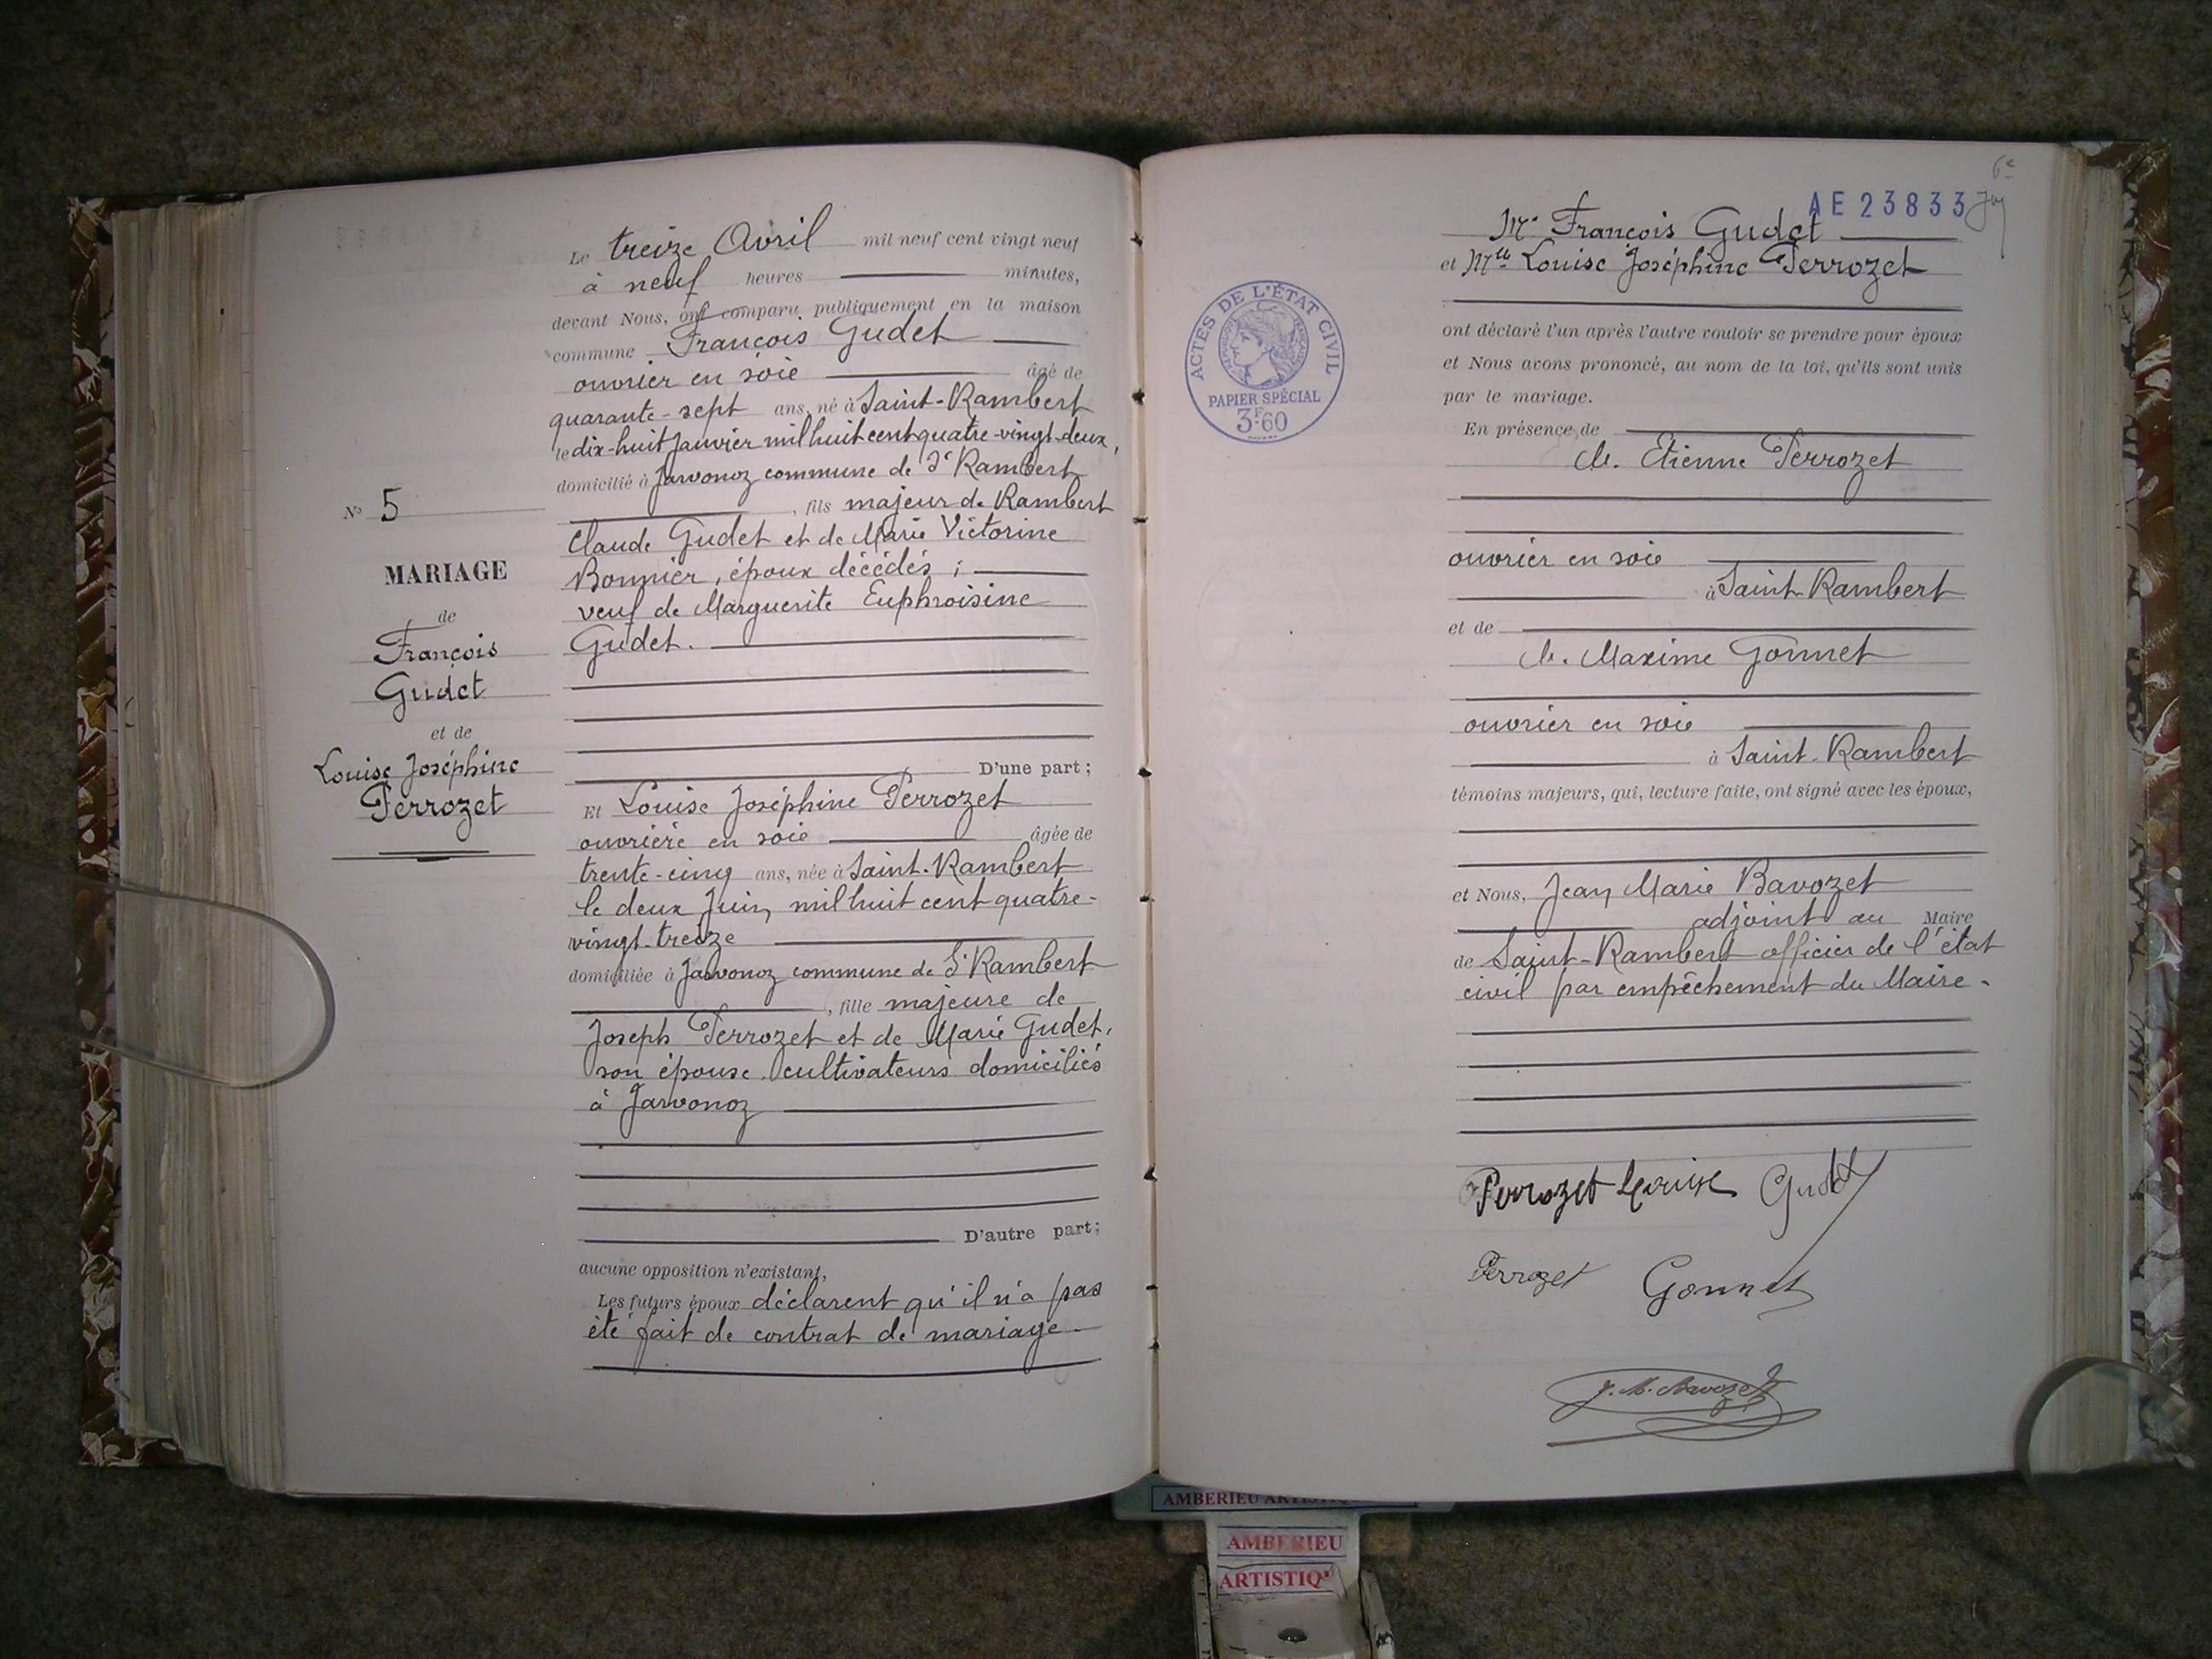 Le treize Avril mil neuf cent vingt neuf
à neuf heures minutes,
devant Nous, ont comparu publiquement en la maison
commune François Gudet
ouvrier en soie âgé de
quarante-sept ans, né à Saint-Rambert
le dix-huit Janvier mil huit cent quatre-vingt-deux,
domicilié à Javonoz commune de St Rambert
, fils majeur de Rambert
Claude Gudet et de Marie Victorine
Bonnier, époux décédés ;
veuf de Marguerite Euphroisine
Gudet.
D'une part ;
N° 5
MARIAGE
de
François
Gudet
et de
Louise Joséphine
Perrozet
Et Louise Joséphine Perrozet
ouvrière en soie âgée de
trente-cinq ans, née à Saint-Rambert
le deux Juin mil huit cent quatre-
vingt-treize
domiciliée à Javonoz commune de St Rambert
, fille majeure de
Joseph Perrozet et de Marie Gudet,
son épouse, cultivateurs domiciliés
à Javonoz
D'autre part ;
aucune opposition n'existant,
Les futurs époux déclarent qu'il n'a pas
été fait de contrat de mariage.
6e
AE 23833
Mr François Gudet
et Mlle Louise Joséphine Perrozet
ont déclaré l'un après l'autre vouloir se prendre pour époux
et Nous avons prononcé, au nom de la loi, qu'ils sont unis
par le mariage.
ACTES DE L'ÉTAT CIVIL
PAPIER SPÉCIAL
3F60
En présence de
M. Etienne Perrozet
ouvrier en soie
à Saint-Rambert
et de
M. Maxime Gonnet
ouvrier en soie
à Saint-Rambert
témoins majeurs, qui, lecture faite, ont signé avec les époux,
et Nous, Jean Marie Bavozet
adjoint au Maire
de Saint-Rambert officier de l'état
civil par empêchement du Maire.
Perrozet Louise Gudet
Perrozet Gonnet
J. M. Bavozet
AMBERIEU
AMBERIEU
ARTISTIQ